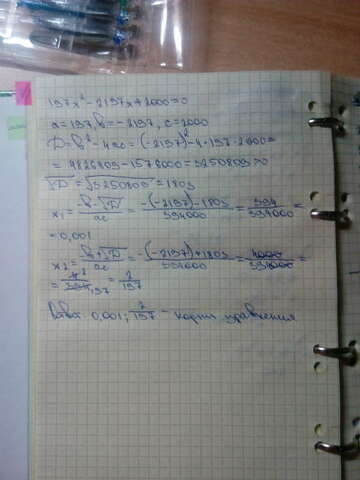 197x² - 2197x + 2000 = 0
a = 197, b = -2197, c = 2000
D = b² - 4ac = (-2197)² - 4·197·2000 =
= 4826809 - 1576000 = 3250809 > 0
√D = √3250809 = 1803
x₁ = b - √D / ac = -(-2197) - 1803 / 394000 = 394 / 394000 =
= 0,001
x₂ = b + √D / ac = -(-2197) + 1803 / 394000 = 4000 / 394000 =
= 4 2 / 394 197 = 2 / 197
Ответ 0,001; 2/197 - корни уравнения